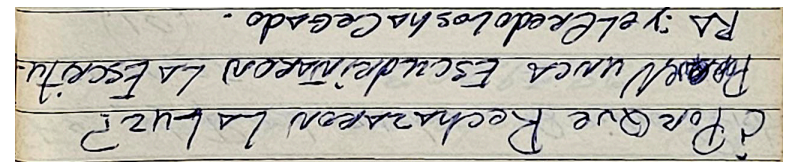 ¿PORQUE RechazaRON LA Luz?
NUNCA EScudRiÑARON LA EScRitu-
RA: y eLCRedo Los ha CeGado.